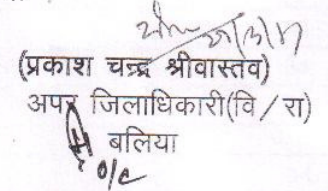 (प्रकाश चन्द्र श्रीवास्तव)
अपर जिलाधिकारी(वि / रा)
बलिया
O/C